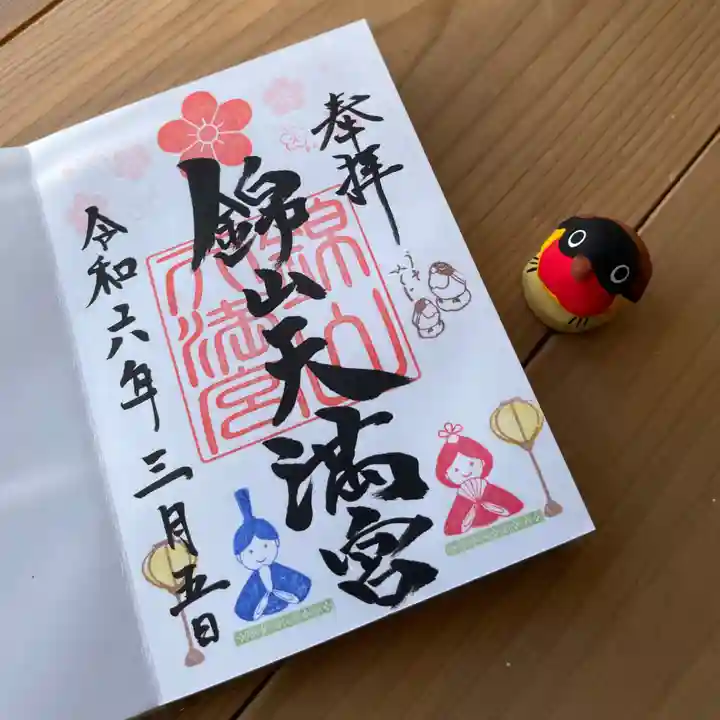 奉拝
錦山天満宮
錦山
天満宮
令和六年三月五日